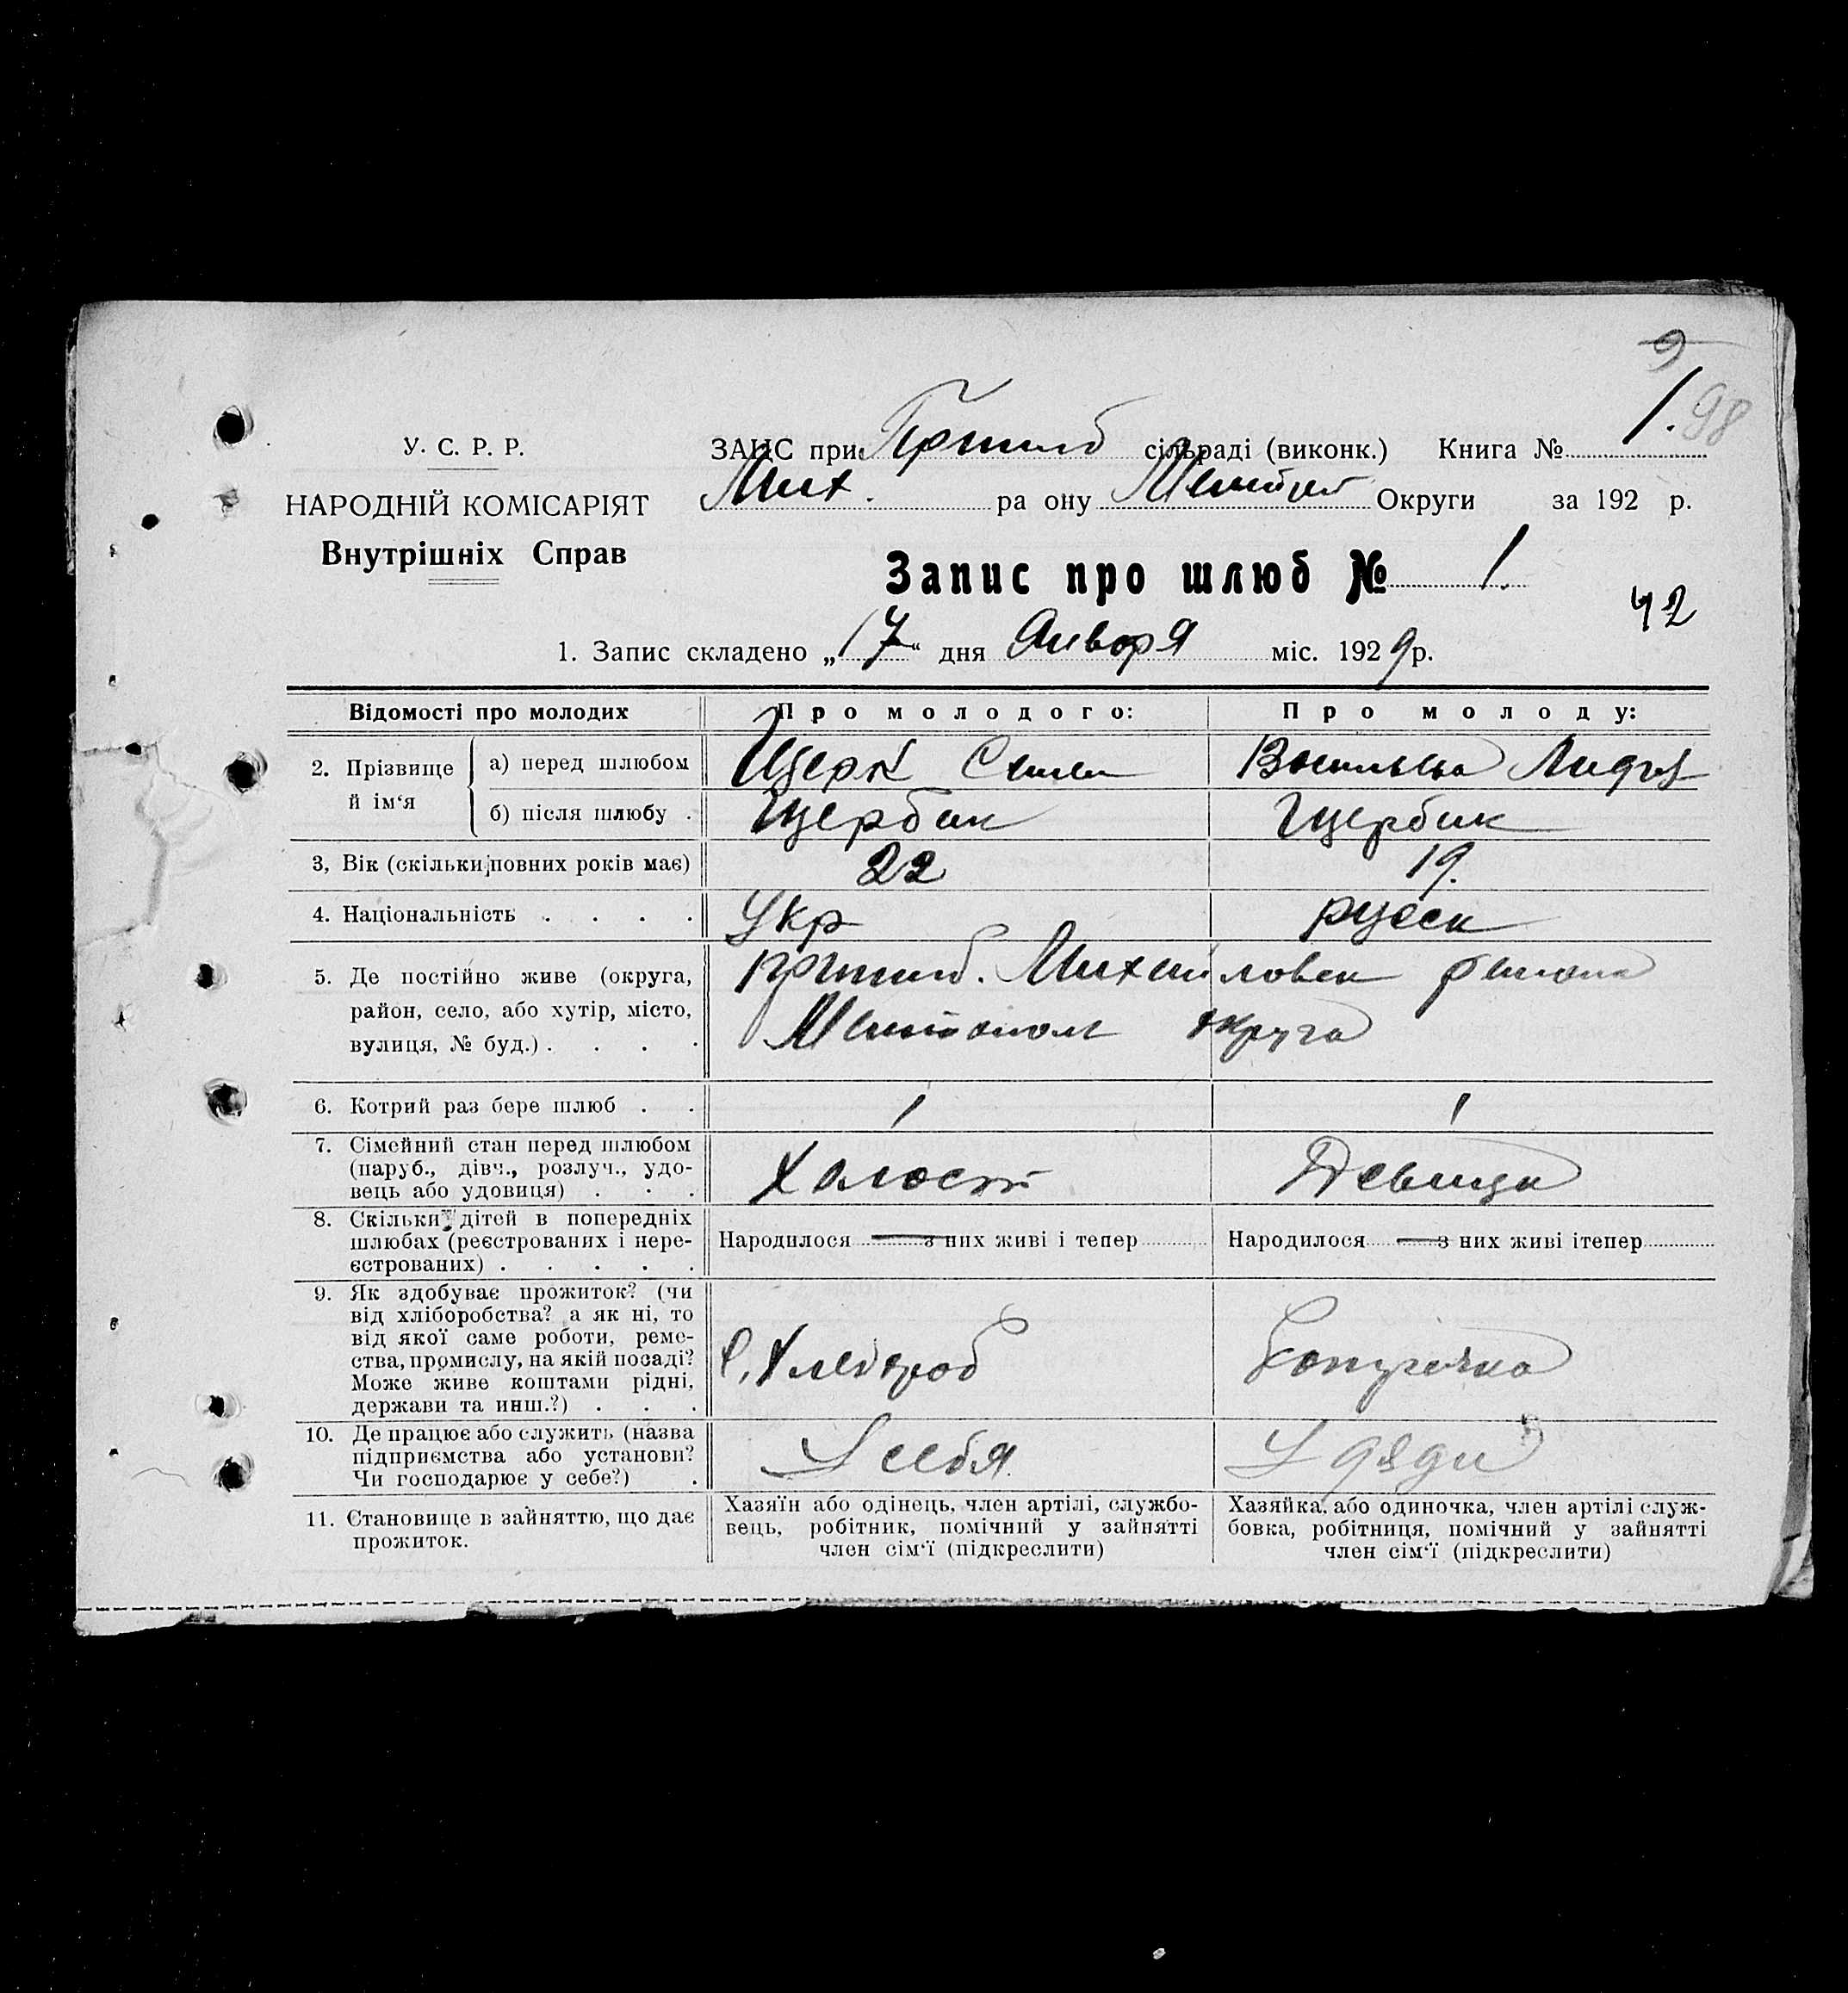 9
1. 98
У. С. Р. Р.
ЗАЦС при сільраді (виконк.) Книга №
НАРОДНІЙ КОМІСАРІЯТ
Мих. ра ону Округи за 192 р.
Внутрішніх Справ
Запис про шлюб № 1.
42
1. Запис складено „17“ дня Января міс. 1929 р.
Відомості про молодих
Про молодого:
Про молоду:
2. Прізвище й ім‘я
а) перед шлюбом
б) після шлюбу .
Щербак
Щербак
3, Вік (скільки повних років має)
22
19.
4. Національність . . . .
Укр
русск
5. Де постійно живе (округа,
район, село, або хутір, місто,
вулиця, № буд.) . . . .
Михайловск района
округа
6. Котрий раз бере шлюб . .
1
1
7. Сімейний стан перед шлюбом
(паруб., дівч., розлуч., удо-
вець або удовиця) . . .
Холост
Девица
8. Скільки дітей в попередніх
шлюбах (реєстрованих і нере-
єстрованих) . . . . .
Народилося — з них живі і тепер
Народилося — з них живі ітепер
9. Як здобуває прожиток? (чи
від хліборобства? а як ні, то
від якої саме роботи, реме-
ства, промислу, на якій посаді?
Може живе коштами рідні,
держави та инш.?) . . .
Хлебороб
10. Де працює або служить (назва
підприємства або установи?
Чи господарює у себе?) .
У себя
У дяди
11. Становище в зайняттю, що дає
прожиток.
Хазяїн або одінець, член артілі, службо-
вець, робітник, помічний у зайнятті
член сім‘ї (підкреслити)
Хазяйка, або одиночка, член артілі служ-
бовка, робітниця, помічний у зайнятті
член сім‘ї (підкреслити)